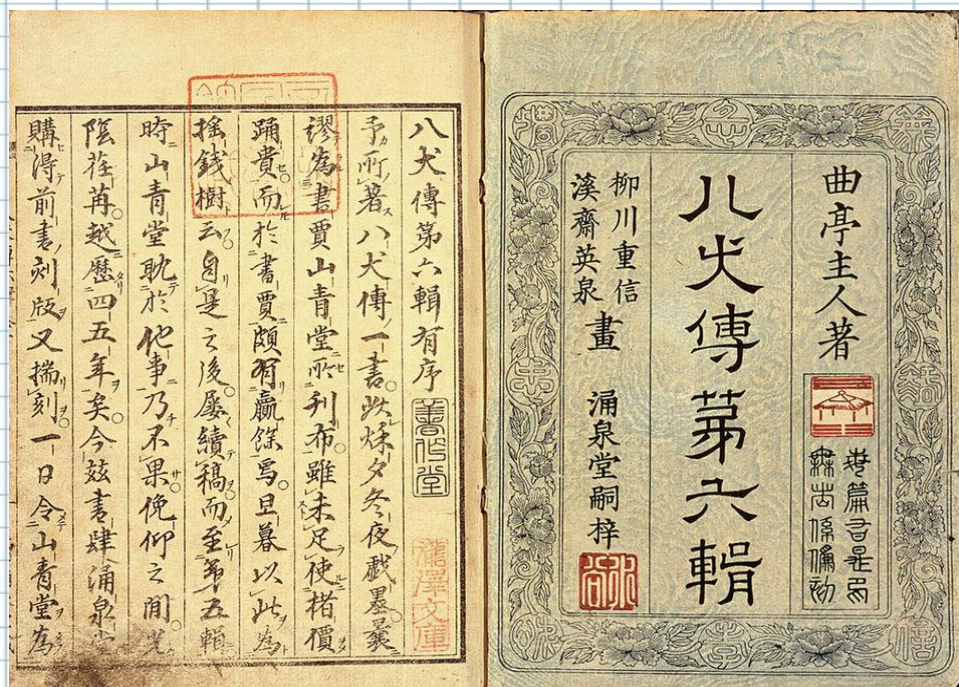 曲亭主人著
八犬傳第六輯
柳川重信
溪齋英泉
畫
涌泉堂嗣梓
八犬傳第六輯有序
瀧澤文庫
予所著八犬傳一書此秌夕冬夜戲墨曩
謬為書賈山青堂所刊布雖未足使楮價
踊貴而於書賈頗有贏餘焉旦暮以此為
搖錢樹云自是之後屢續稿而至第五輯
時山青堂耽於他事乃不果俛仰之間光
陰荏苒越歷四五年矣今茲書肆涌泉堂
購得前書刻版又揣刻一日令山青堂為